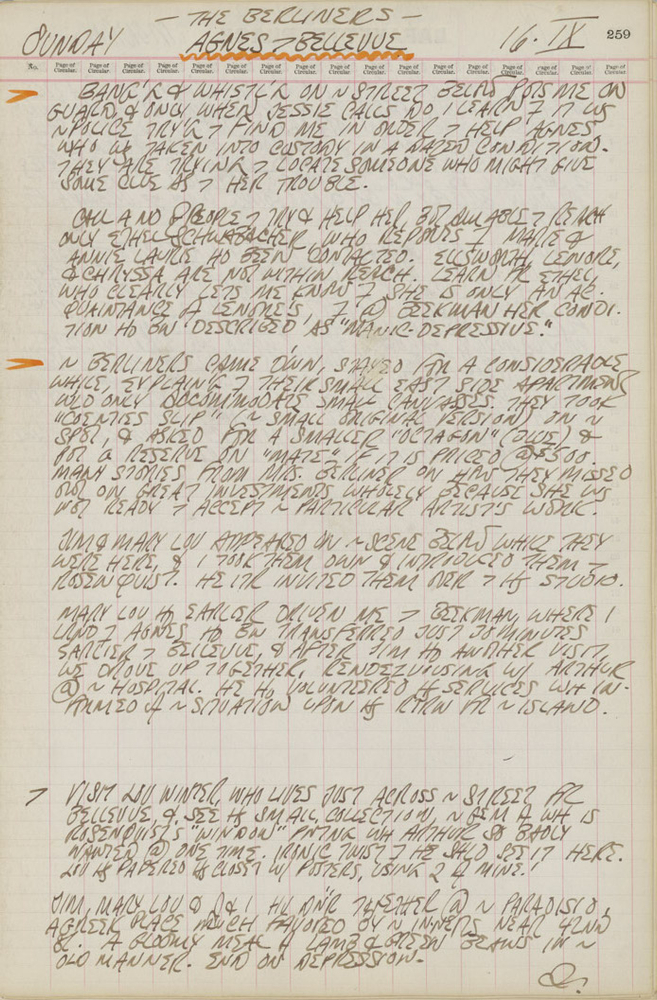 — THE BERLINERS —
SUNDAY AGNES → BELLEVUE 16·IX 259
No. Page of Circular. Page of Circular. Page of Circular. Page of Circular. Page of Circular. Page of Circular. Page of Circular. Page of Circular. Page of Circular. Page of Circular. Page of Circular. Page of Circular. Page of Circular. Page of Circular. Page of Circular.
BANG'R & WHISTL'R ON ~ STREET BELOW PUTS ME ON
GUARD, & ONLY WHEN JESSIE CALLS DO I LEARN 7 IT WS
~ POLICE TRY'G 7 FIND ME IN ORDER 7 HELP AGNES,
WHO WS TAKEN INTO CUSTODY IN A DAZED CONDITION.
THEY ARE TRYING 7 LOCATE SOMEONE WHO MIGHT GIVE
SOME CLUE AS 7 HER TROUBLE.
CALL A NO. PEOPLE 7 TRY & HELP HER, BUT AM ABLE 7 REACH
ONLY ETHEL SCHWABACHER, WHO REPORTS 7 MARIE &
ANNIE LAURIE HD BEEN CONTACTED. ELLSWORTH, LENORE,
& CHRYSSA ARE NOT WITHIN REACH. LEARN FR ETHEL,
WHO CLEARLY LETS ME KNOW 7 SHE IS ONLY AN AC-
QUAINTANCE OF LENORE'S, 7 @ BEEKMAN HER CONDI-
TION HD BN DESCRIBED AS "MANIC-DEPRESSIVE."
~ BERLINERS CAME DWN, STAYED FR A CONSIDERABLE
WHILE, EXPLAING 7 THEIR SMALL EAST SIDE APARTMENT
WLD ONLY ACCOMMODATE SMALL CANVASSES. THEY TOOK
"COENTIES SLIP" (~ SMALL ORIGINAL VERSION) ON ~
SPOT, & ASKED FR A SMALLER "OCTAGON" (BLUE) &
PUT A RESERVE ON "MATE" IF IT IS PRICED @ $500.
MANY STORIES FROM MRS. BERLINER ON HOW THEY MISSED
OUT ON GREAT INVESTMENTS WHOLELY BECAUSE SHE WS
NOT READY 7 ACCEPT ~ PARTICULAR ARTIST'S WORK.
JIM & MARY LOU APPEARED ON ~ SCENE BELOW WHILE THEY
WERE HERE, & I TOOK THEM DWN & INTRODUCED THEM 7
ROSENQUIST. HE LTR INVITED THEM OVER 7 HS STUDIO.
MARY LOU HD EARLIER DRIVEN ME 7 BEEKMAN, WHERE I
LRND 7 AGNES HD BN TRANSFERRED JUST 30 MINUTES
EARLIER 7 BELLEVUE, & AFTER JIM HD ANOTHER VISIT,
WE DROVE UP TOGETHER, RENDEZVOUSING W/ ARTHUR
@ ~ HOSPITAL. HE HD VOLUNTEERED HS SERVICES WH IN-
FORMED OF ~ SITUATION UPON HS RTRN FR ~ ISLAND.
7 VISIT LOU WINTER, WHO LIVES JUST ACROSS ~ STREET FR
BELLEVUE, & SEE HS SMALL COLLECTION, ~ GEM OF WH IS
ROSENQUIST'S "WINDOW" PNTNG WH ARTHUR SO BADLY
WANTED @ ONE TIME. IRONIC TWIST 7 HE SHLD SEE IT HERE.
LOU HS PAPERED HS CLOSET W/ POSTERS, USING 2 OF MINE!
JIM, MARY LOU & I HV DNR TOGETHER @ ~ PARADISIO,
A GREEK PLACE MUCH FAVORED BY ~ INNERS NEAR 42ND
ST. A GLOOMY MEAL OF LAMB & GREEN BEANS IN ~
OLD MANNER. END ON DEPRESSION.